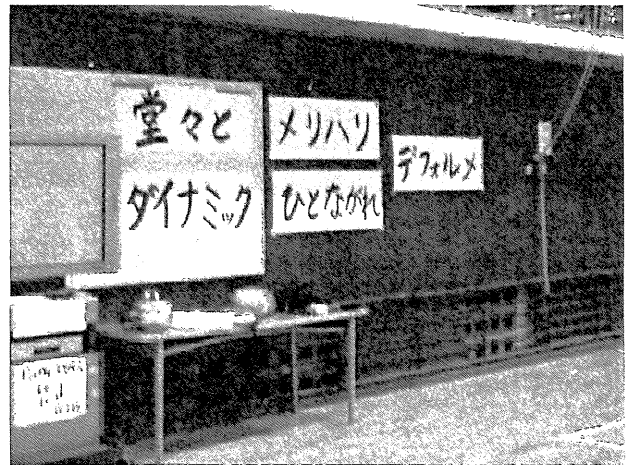 堂々と
ダイナミック
メリハリ
ひとながれ
デフォルメ